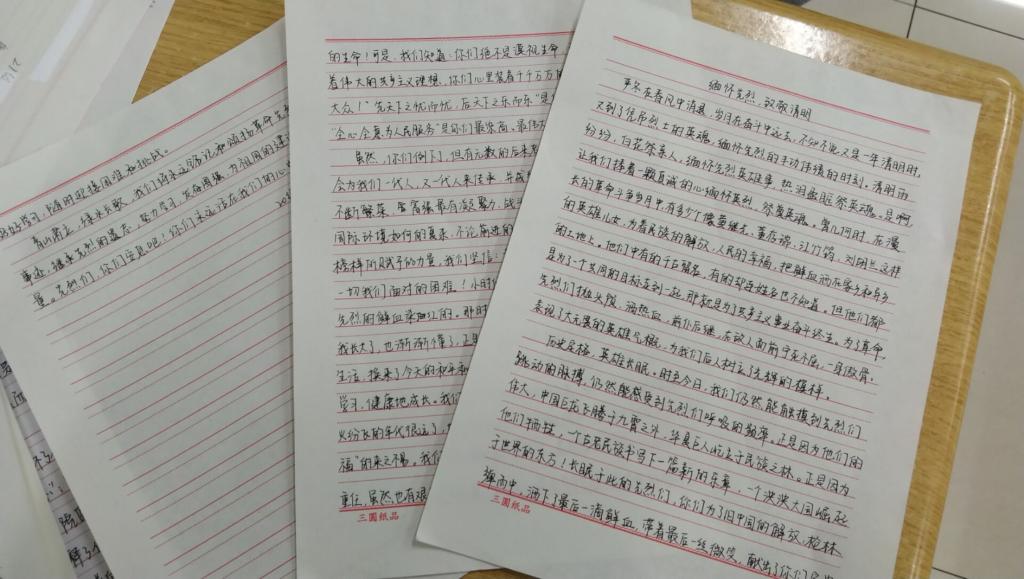 缅怀先烈,致敬清明
严冬在春风中消息,岁月在奋斗中远去,不知不觉又是一年清明时,
又到了凭吊烈士的英魂,缅怀先烈的丰功伟绩的时刻。清明雨
纷纷,白花祭亲人,缅怀先烈英雄事,热泪盈眶祭英魂。是啊,
让我们捧着一颗真诚的心缅怀英烈,祭奠英魂。曾几何时,在漫
长的革命斗争岁月中,有多少个像黄继光、董存瑞、江竹筠、刘胡兰这样
的英雄儿女,为着民族的解放、人民的幸福,把鲜血洒在家乡和异乡
的土地上。他们中有的千古留名,有的却连姓名也不知道。但他们都
是为了一个共同的目标走到一起,那就是为了共产主义事业奋斗终生。为了革命,
先烈们抛头颅、洒热血,前仆后继,在敌人面前宁死不屈,一身傲骨。
表现了大无畏的英雄气概,为我们后人树立了光辉的榜样。
历史是根,英雄长眠。时至今日,我们仍然能触摸到先烈们
跳动的脉搏,仍然能感受到先烈们呼吸的频率。正是因为他们的
伟大,中国巨龙飞腾于九霄之外,华夏巨人屹立于民族之林。正是因为
他们牺牲,一个古老民族书写下一篇新的乐章,一个泱泱大国崛起
于世界的东方!长眠于此的先烈们,你们为了旧中国的解放,枪林
弹雨中,洒下了最后一滴鲜血,带着最后一丝微笑,献出了你们
三圆纸品
的生命!可是,我们知道:你们绝不是漠视生命,
着伟大的共产主义理想,你们心里装着千千万万
大众!“先天下之忧而忧,后天下之乐而乐”是
“全心全意为人民服务”是你们最崇高、最伟大
虽然,你们倒下了,但有无数的后来
会为我们一代人,又一代人来传承,并
不断繁荣,
国际环境如何的复杂,不论前进的
榜样所赋予的力量,我们坚信
一切我们面对的困难!小时
先烈的鲜血染红的。那时
我长大了,也渐渐个懂了,正是
生活,换来了今天的和平
学习,健康地成长。我们
火纷飞的年代很远了,
福”的来之不易。我们
重任,虽然也有艰
三圆纸品
好好学习,随时迎接困难和挑战。
青山肃立,绿水长歌,我们将永远铭记和颂扬革命先
事迹,继承先烈的遗志,努力学习,发奋图强,为祖国的建
量。先烈们,你们安息吧!你们永远活在我们的心